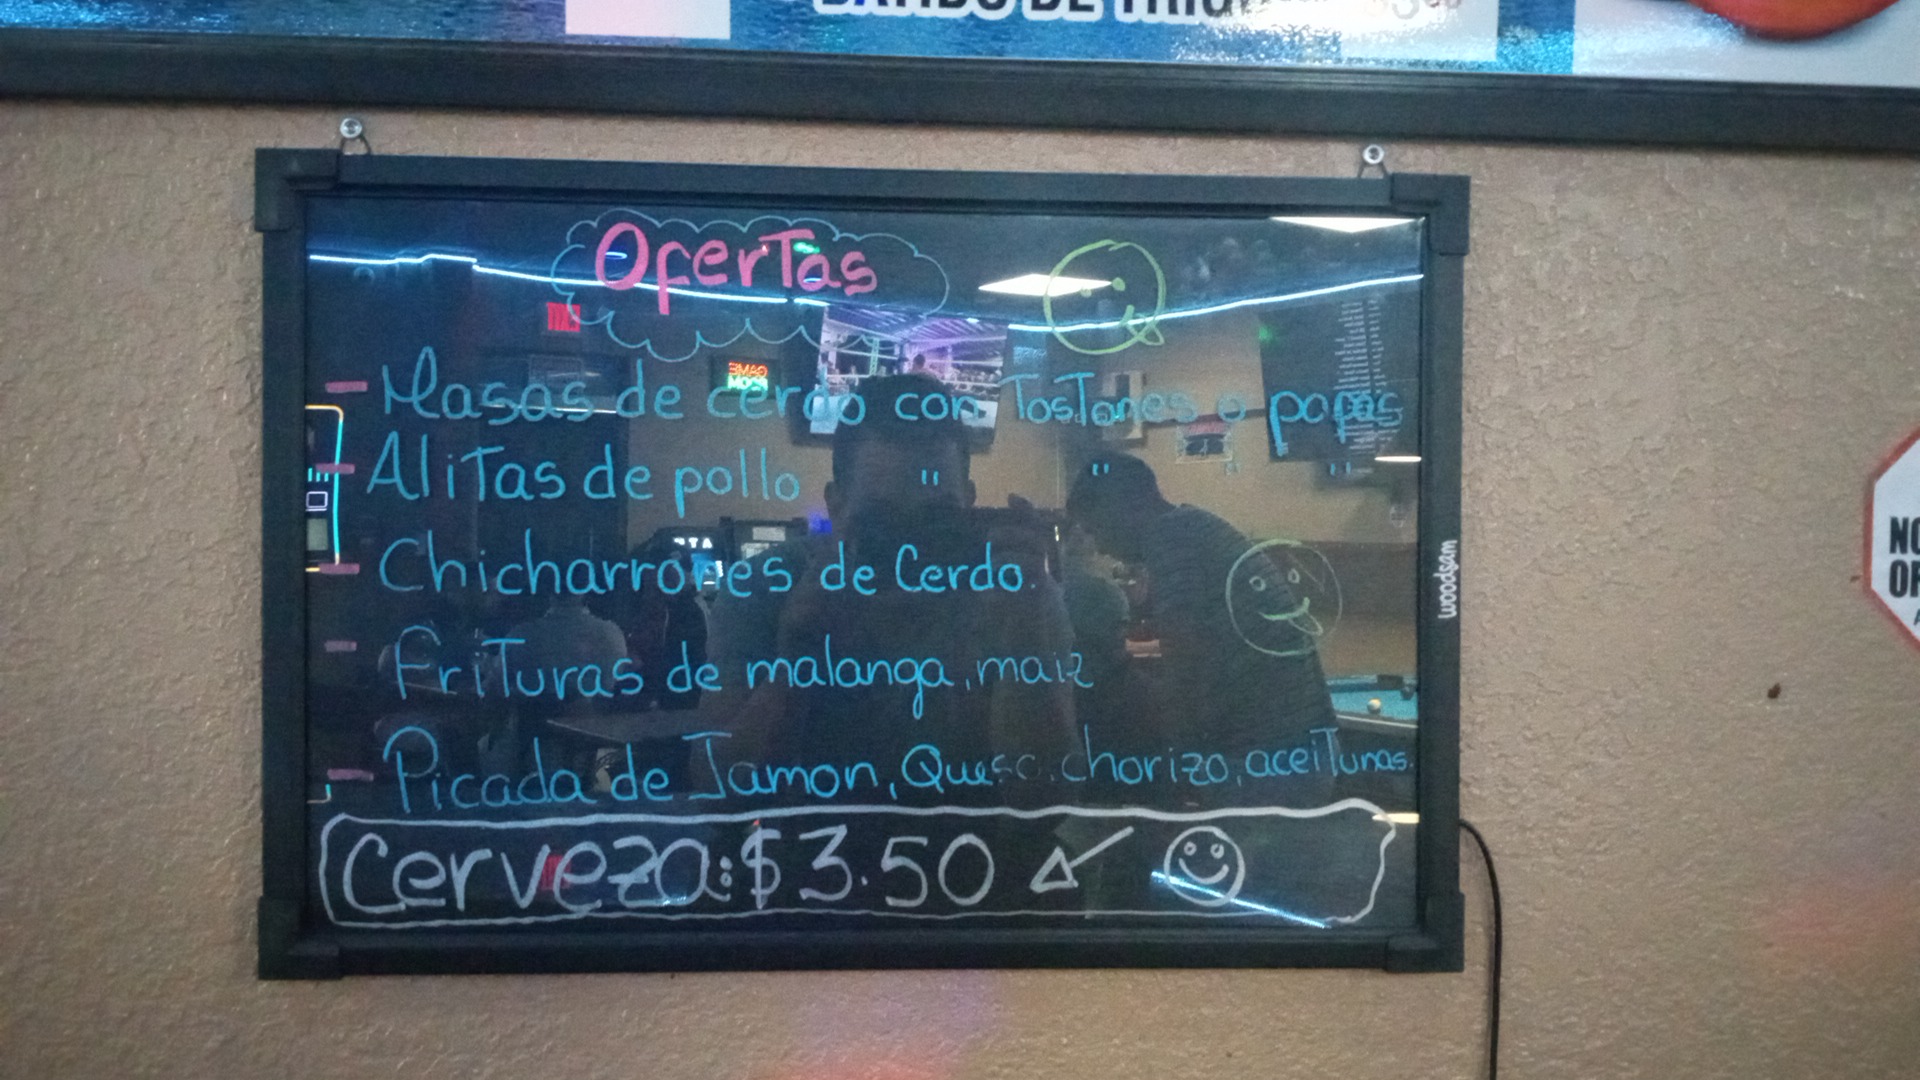 BATIDO DE TRIGO
Ofertas
- Masas de cerdo con Tostones o papas
- Alitas de pollo " " "
- Chicharrones de Cerdo.
- frituras de malanga, maiz
- Picada de Jamon, Queso, chorizo, aceitunas.
Cerveza: $3.50
woodsam
EXIT
GAME
ROOM
NO